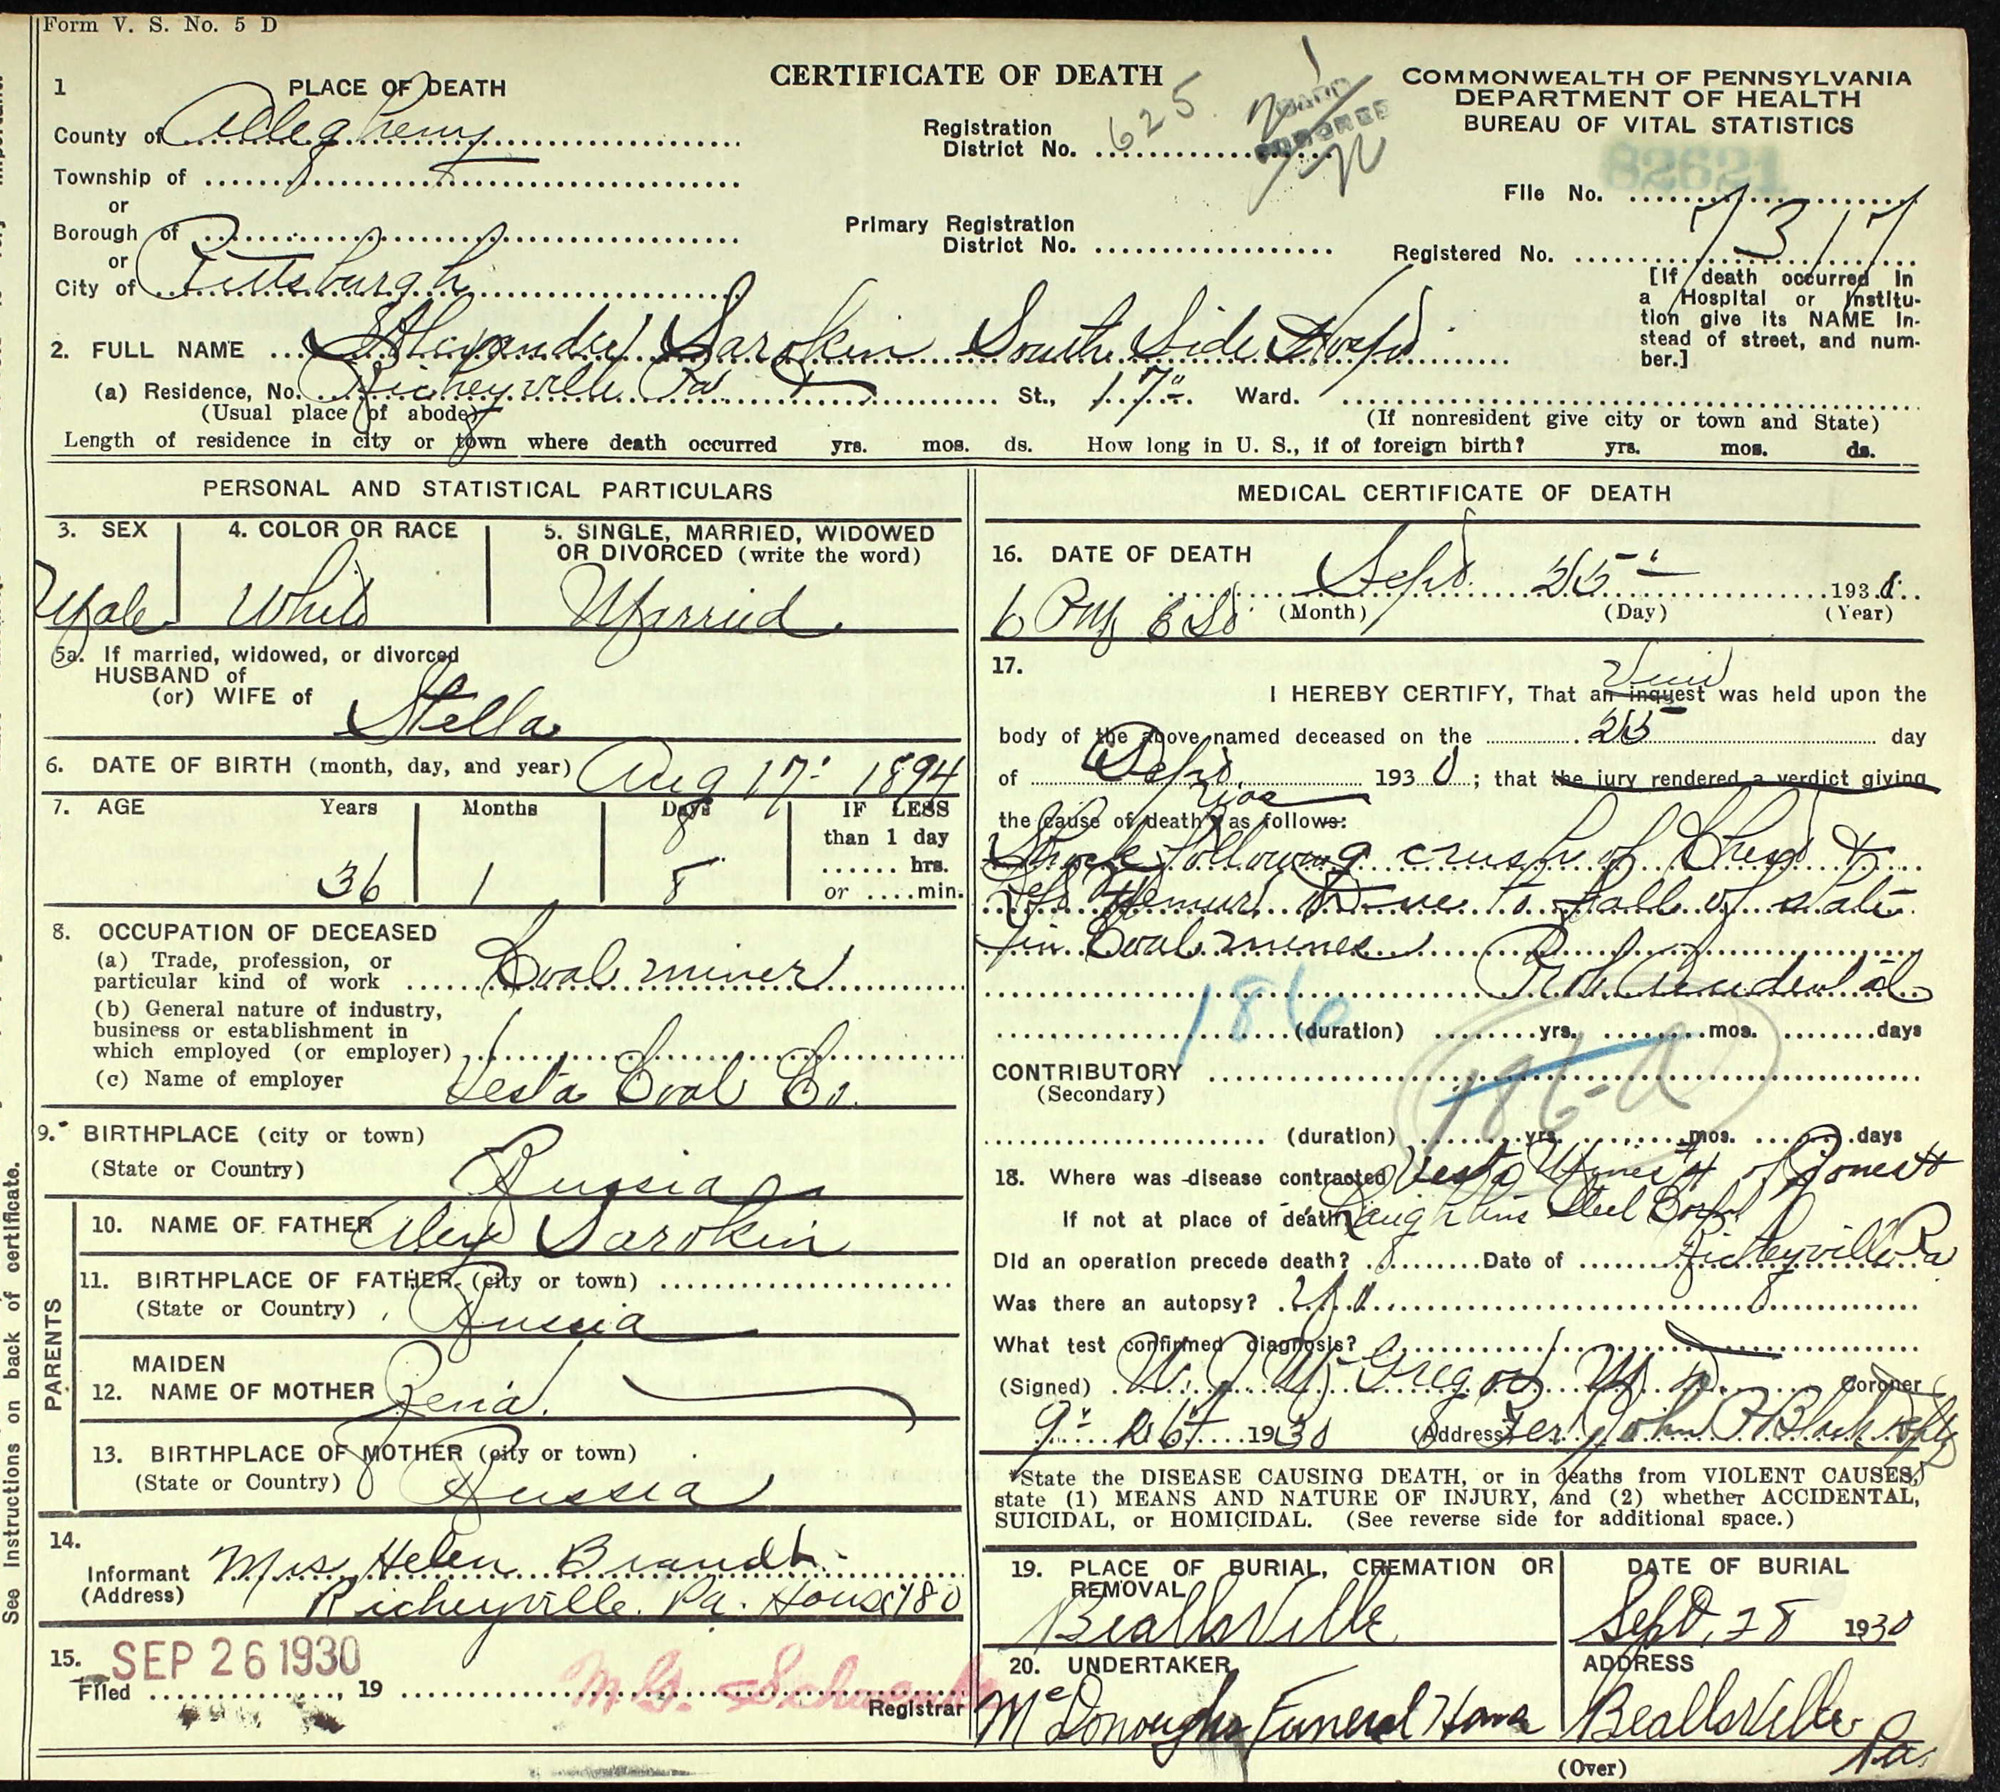 Form V. S. No. 5 D
CERTIFICATE OF DEATH
COMMONWEALTH OF PENNSYLVANIA
DEPARTMENT OF HEALTH
BUREAU OF VITAL STATISTICS
1 PLACE OF DEATH
County of Allegheny
Township of
or
Borough of
or
City of Pittsburgh
Registration District No. 625
Primary Registration District No.
82621
File No.
Registered No. 7317
[If death occurred in
a Hospital or Institu-
tion give its NAME in-
stead of street, and num-
ber.]
2. FULL NAME Alexander Sarokin South Side Hosp
(a) Residence, No. Richeyville Pa St., 17" Ward.
(Usual place of abode)
(If nonresident give city or town and State)
Length of residence in city or town where death occurred yrs. mos. ds. How long in U. S., if of foreign birth? yrs. mos. ds.
PERSONAL AND STATISTICAL PARTICULARS
3. SEX 4. COLOR OR RACE 5. SINGLE, MARRIED, WIDOWED
OR DIVORCED (write the word)
Male White Married
5a. If married, widowed, or divorced
HUSBAND of
(or) WIFE of Stella
6. DATE OF BIRTH (month, day, and year) Aug 17" 1894
7. AGE Years Months Days IF LESS
than 1 day
hrs.
or min.
36 1 8
8. OCCUPATION OF DECEASED
(a) Trade, profession, or
particular kind of work Coal miner
(b) General nature of industry,
business or establishment in
which employed (or employer)
(c) Name of employer Vesta Coal Co.
9. BIRTHPLACE (city or town)
(State or Country) Russia
PARENTS
10. NAME OF FATHER Alex Sarokin
11. BIRTHPLACE OF FATHER (city or town)
(State or Country) Russia
MAIDEN
12. NAME OF MOTHER Zenia
13. BIRTHPLACE OF MOTHER (city or town)
(State or Country) Russia
14.
Informant Mrs. Helen Brandt
(Address) Richeyville. Pa. House 180
15. SEP 26 1930
Filed , 19
Registrar
MEDICAL CERTIFICATE OF DEATH
16. DATE OF DEATH Sept. 25" 1930
6 PM (Month) (Day) (Year)
17.
View
I HEREBY CERTIFY, That an inquest was held upon the
body of the above named deceased on the 25 day
of Sept. 1930; that the jury rendered a verdict giving
the cause of death was as follows:
Shock following crush of Chest &
Left Femur. Due to fall of slate
in Coal mines
Prob accidental
186
(duration) yrs. mos. days
CONTRIBUTORY
(Secondary)
186-a
(duration) yrs. mos. days
18. Where was disease contracted Vesta Mines #4 of Jones &
If not at place of death? Laughlins Steel Corp.
Did an operation precede death? Date of Richeyville Pa
Was there an autopsy?
What test confirmed diagnosis?
(Signed) W. J. McGregor M D Coroner
9" 26" 1930 (Address) Per John P Black Dpty
*State the DISEASE CAUSING DEATH, or in deaths from VIOLENT CAUSES,
state (1) MEANS AND NATURE OF INJURY, and (2) whether ACCIDENTAL,
SUICIDAL, or HOMICIDAL. (See reverse side for additional space.)
19. PLACE OF BURIAL, CREMATION OR
REMOVAL
Beallsville
DATE OF BURIAL
Sept. 28 1930
20. UNDERTAKER
McDonough Funeral Home
ADDRESS
Beallsville Pa.
(Over)
See instructions on back of certificate.